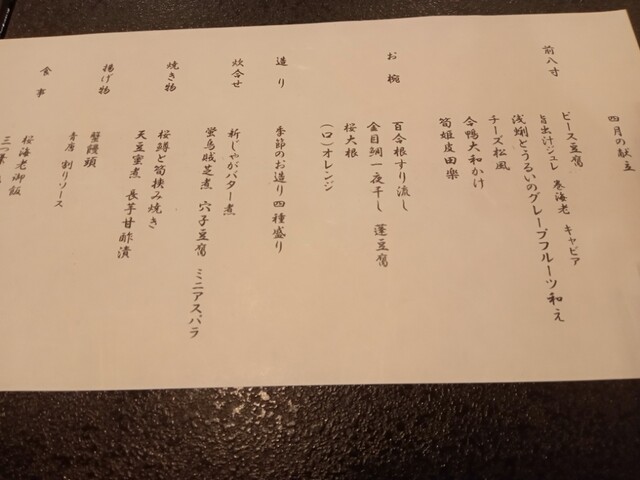 四月の献立
前八寸
ピース豆腐
旨出汁ジュレ 巻海老 キャビア
浅蜊とうるいのグレープフルーツ和え
チーズ松風
合鴨大和かけ
筍姫皮田楽
お椀
百合根すり流し
金目鯛一夜干し 蓮豆腐
桜大根
(口)オレンジ
造り
季節のお造り四種盛り
炊合せ
新じゃがバター煮
蛍烏賊芝煮 穴子豆腐 ミニアスパラ
焼き物
桜鱒と筍挟み焼き
天豆蜜煮 長芋甘酢漬
揚げ物
蟹饅頭
青唐 割りソース
食事
桜海老御飯
三つ葉